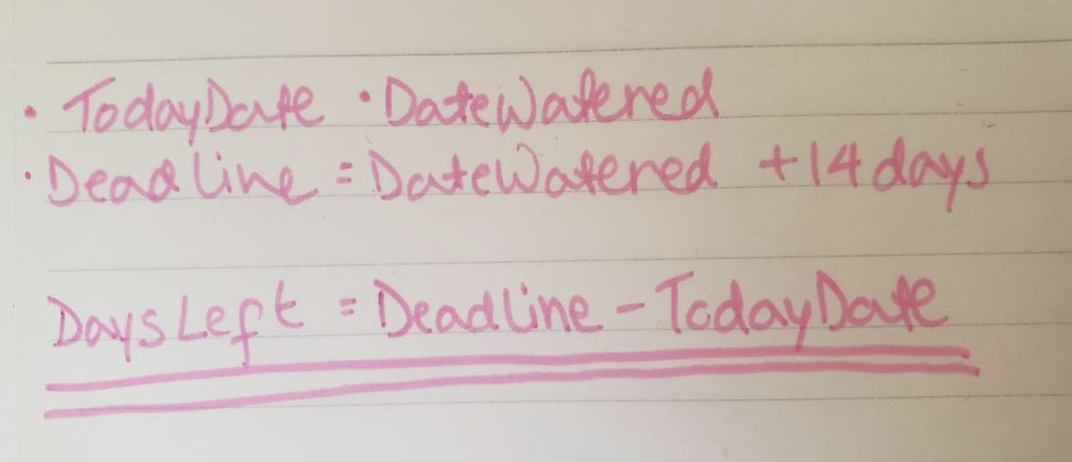 · TodayDate · DateWatered
· Deadline = DateWatered +14 days
DaysLeft = Deadline - TodayDate